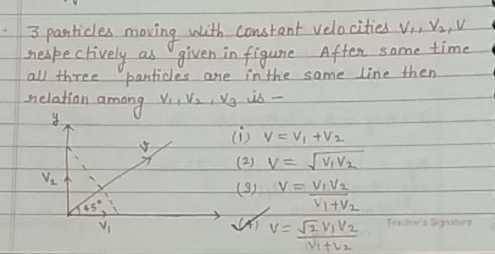 3 particles moving with constant velocities V₁, V₂, V
respectively as given in figure After some time
all three particles are in the same line then
relation among V₁, V₂, V₃ is –
y
v
(1) V = V₁ + V₂
(2) V = √V₁V₂
V₂
(3) V = V₁V₂ / V₁+V₂
45°
V₁
(4) V = √2 V₁V₂ / V₁+V₂
Teacher's Signature